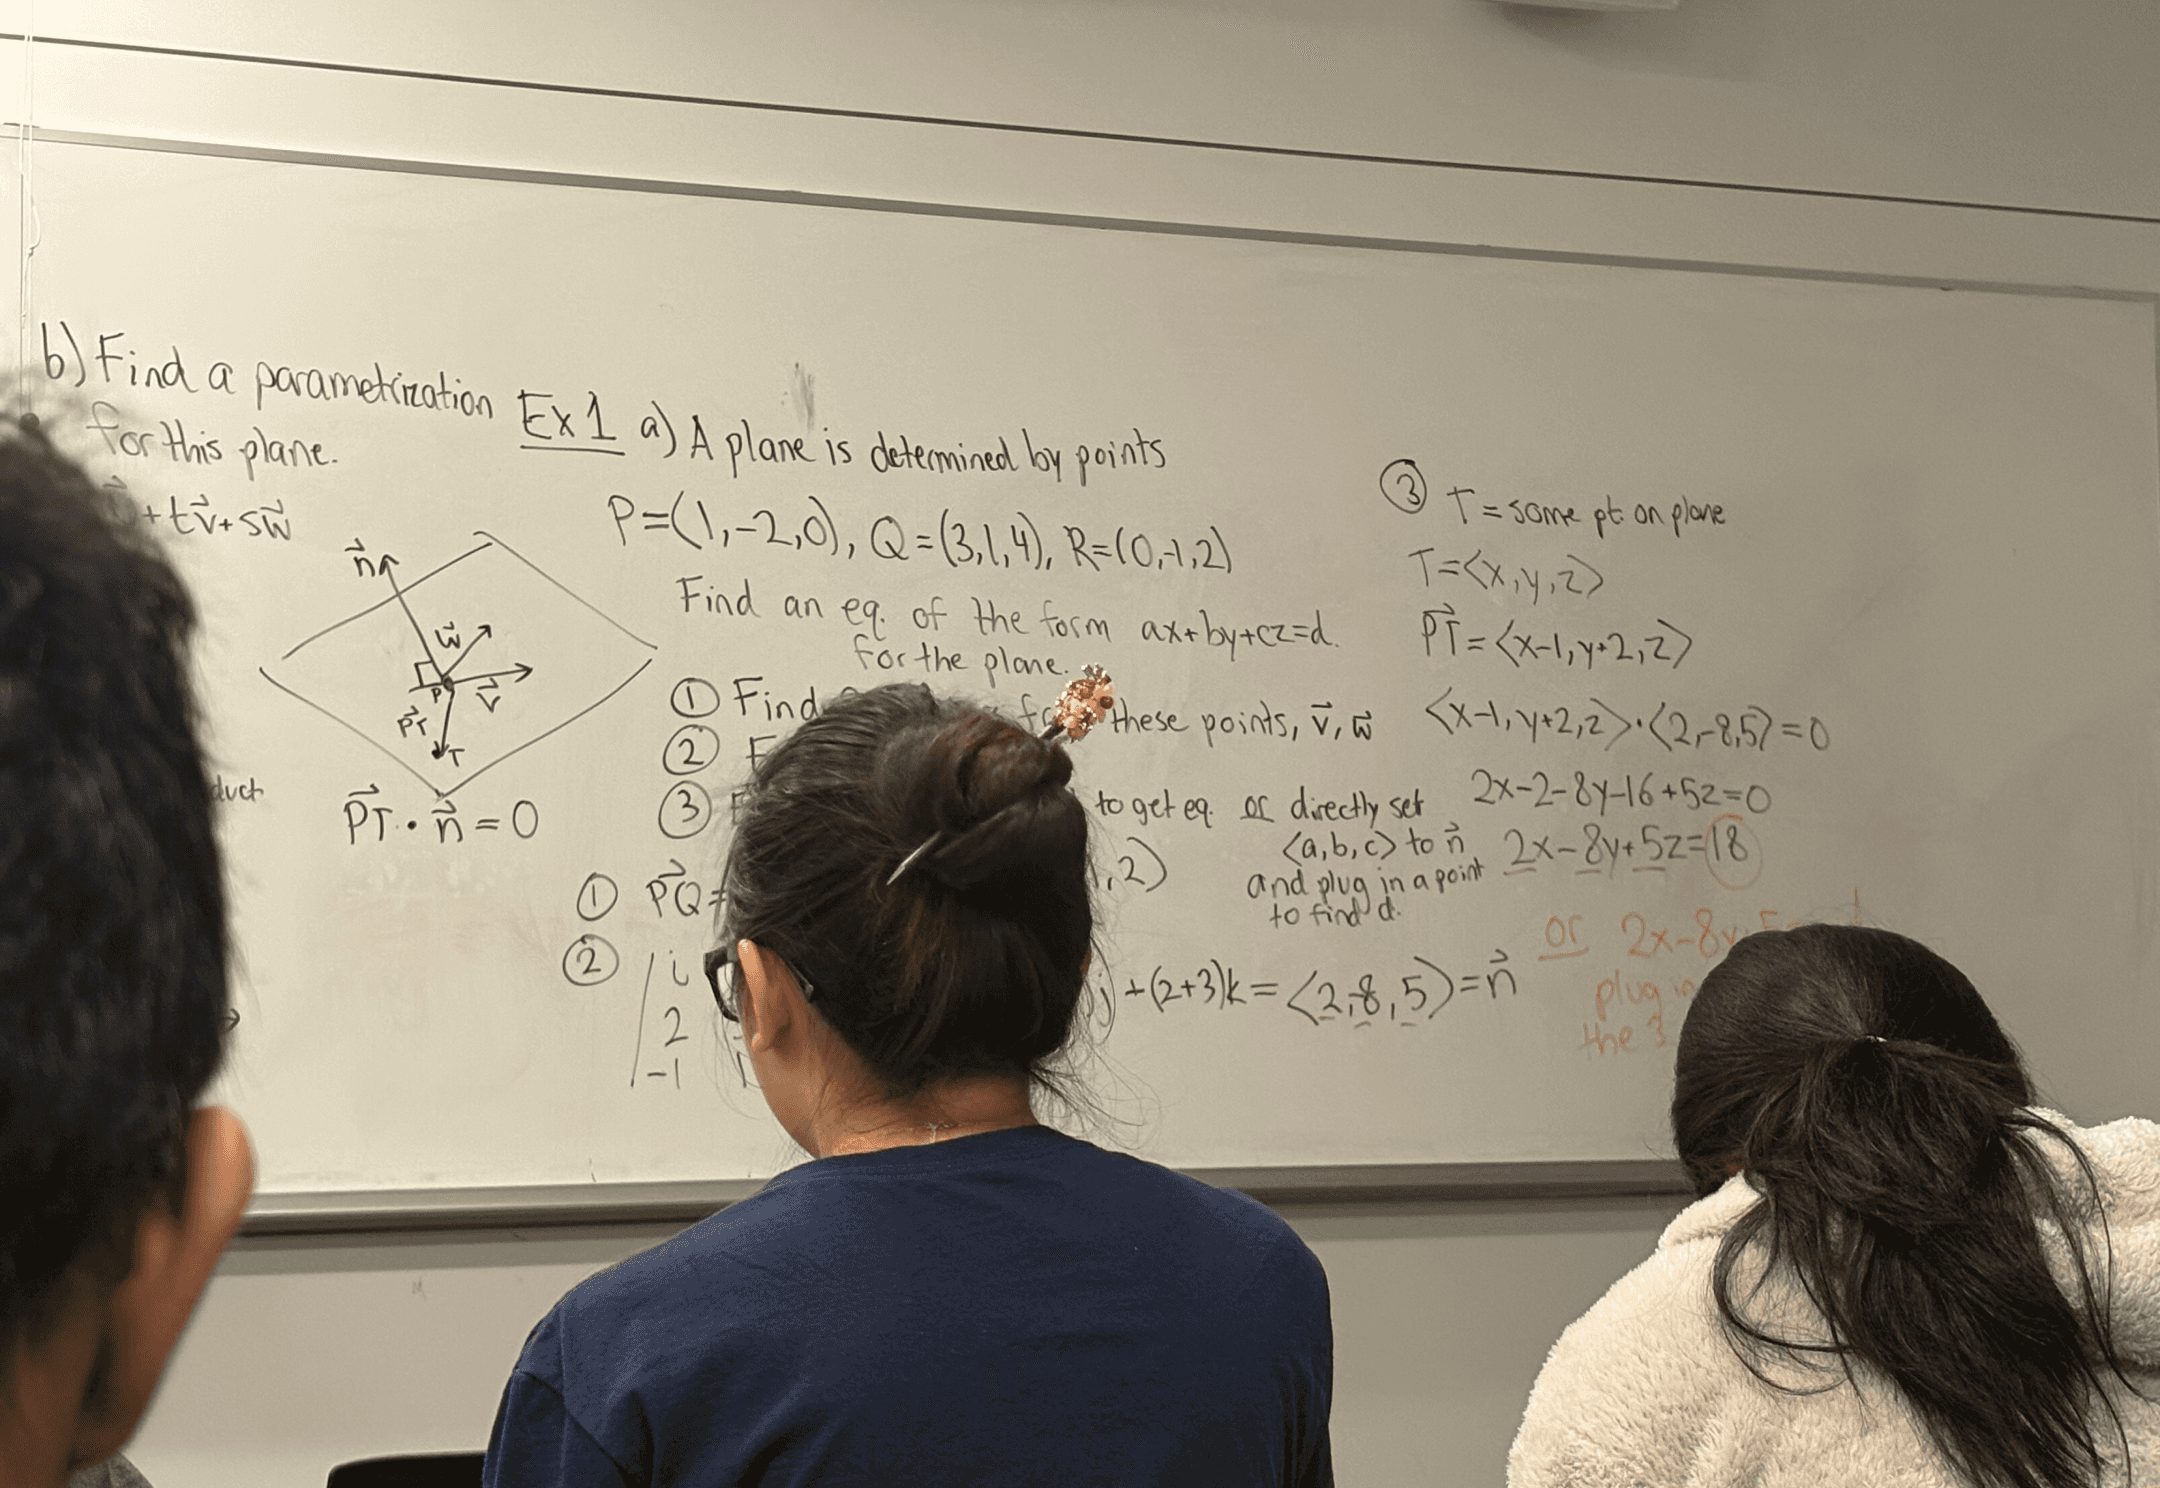 b) Find a parametrization
for this plane.
+t\vec{v}+s\vec{w}
\vec{n}
\vec{w}
P
\vec{v}
\vec{PT}
T
duct
\vec{PT} · \vec{n} = 0
Ex 1 a) A plane is determined by points
P=(1,-2,0), Q=(3,1,4), R=(0,-1,2)
Find an eq. of the form ax+by+cz=d.
for the plane.
① Find these points, \vec{v}, \vec{w}
②
③ to get eq. or directly set
<a,b,c> to \vec{n}
and plug in a point
to find d.
① \vec{PQ}= ,2)
② i
2
-1
j +(2+3)k= <2,-8,5>=\vec{n}
③ T = some pt. on plane
T=<x,y,z>
\vec{PT}=<x-1,y+2,z>
<x-1,y+2,z>·<2,-8,5>=0
2x-2-8y-16+5z=0
2x-8y+5z=18
or 2x-8y
plug in
the 3